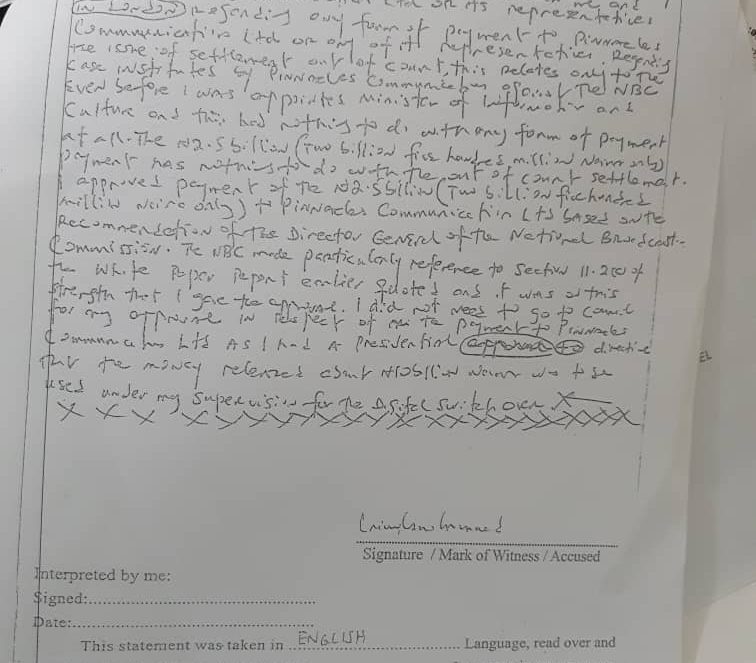 Ltd or its representatives
(in London) Regarding any form of payment to Pinnacles
Communication Ltd or any of it representatives. Regarding
the issue of settlement out of court, this relates only to the
case institutes by Pinnacles Communication against the NBC
even before I was appointed Minister of Information and
Culture and this had nothing to do with any form of payment
at all. The N2.5billion (Two billion five hundred million Naira only)
payment has nothing to do with the out of court settlement.
I approved payment of the N2.5billion (Two billion five hundred
million Naira only) to Pinnacles Communication Ltd based on the
Recommendation of the Director General of the National Broadcast-
Commission. The NBC made particularly reference to Section 11.2(e) of
the White Paper Report earlier quoted and it was on this
strength that I gave the approval. I did not need to go to
for any approval in respect of the payment to Pinnacles
Communication Ltd As I had a Presidential directive
that the money released about N10billion Naira was to be
used under my supervision for the Digital Switch over
Signature / Mark of Witness / Accused
Interpreted by me:
Signed:
Date:
This statement was taken in ENGLISH Language, read over and